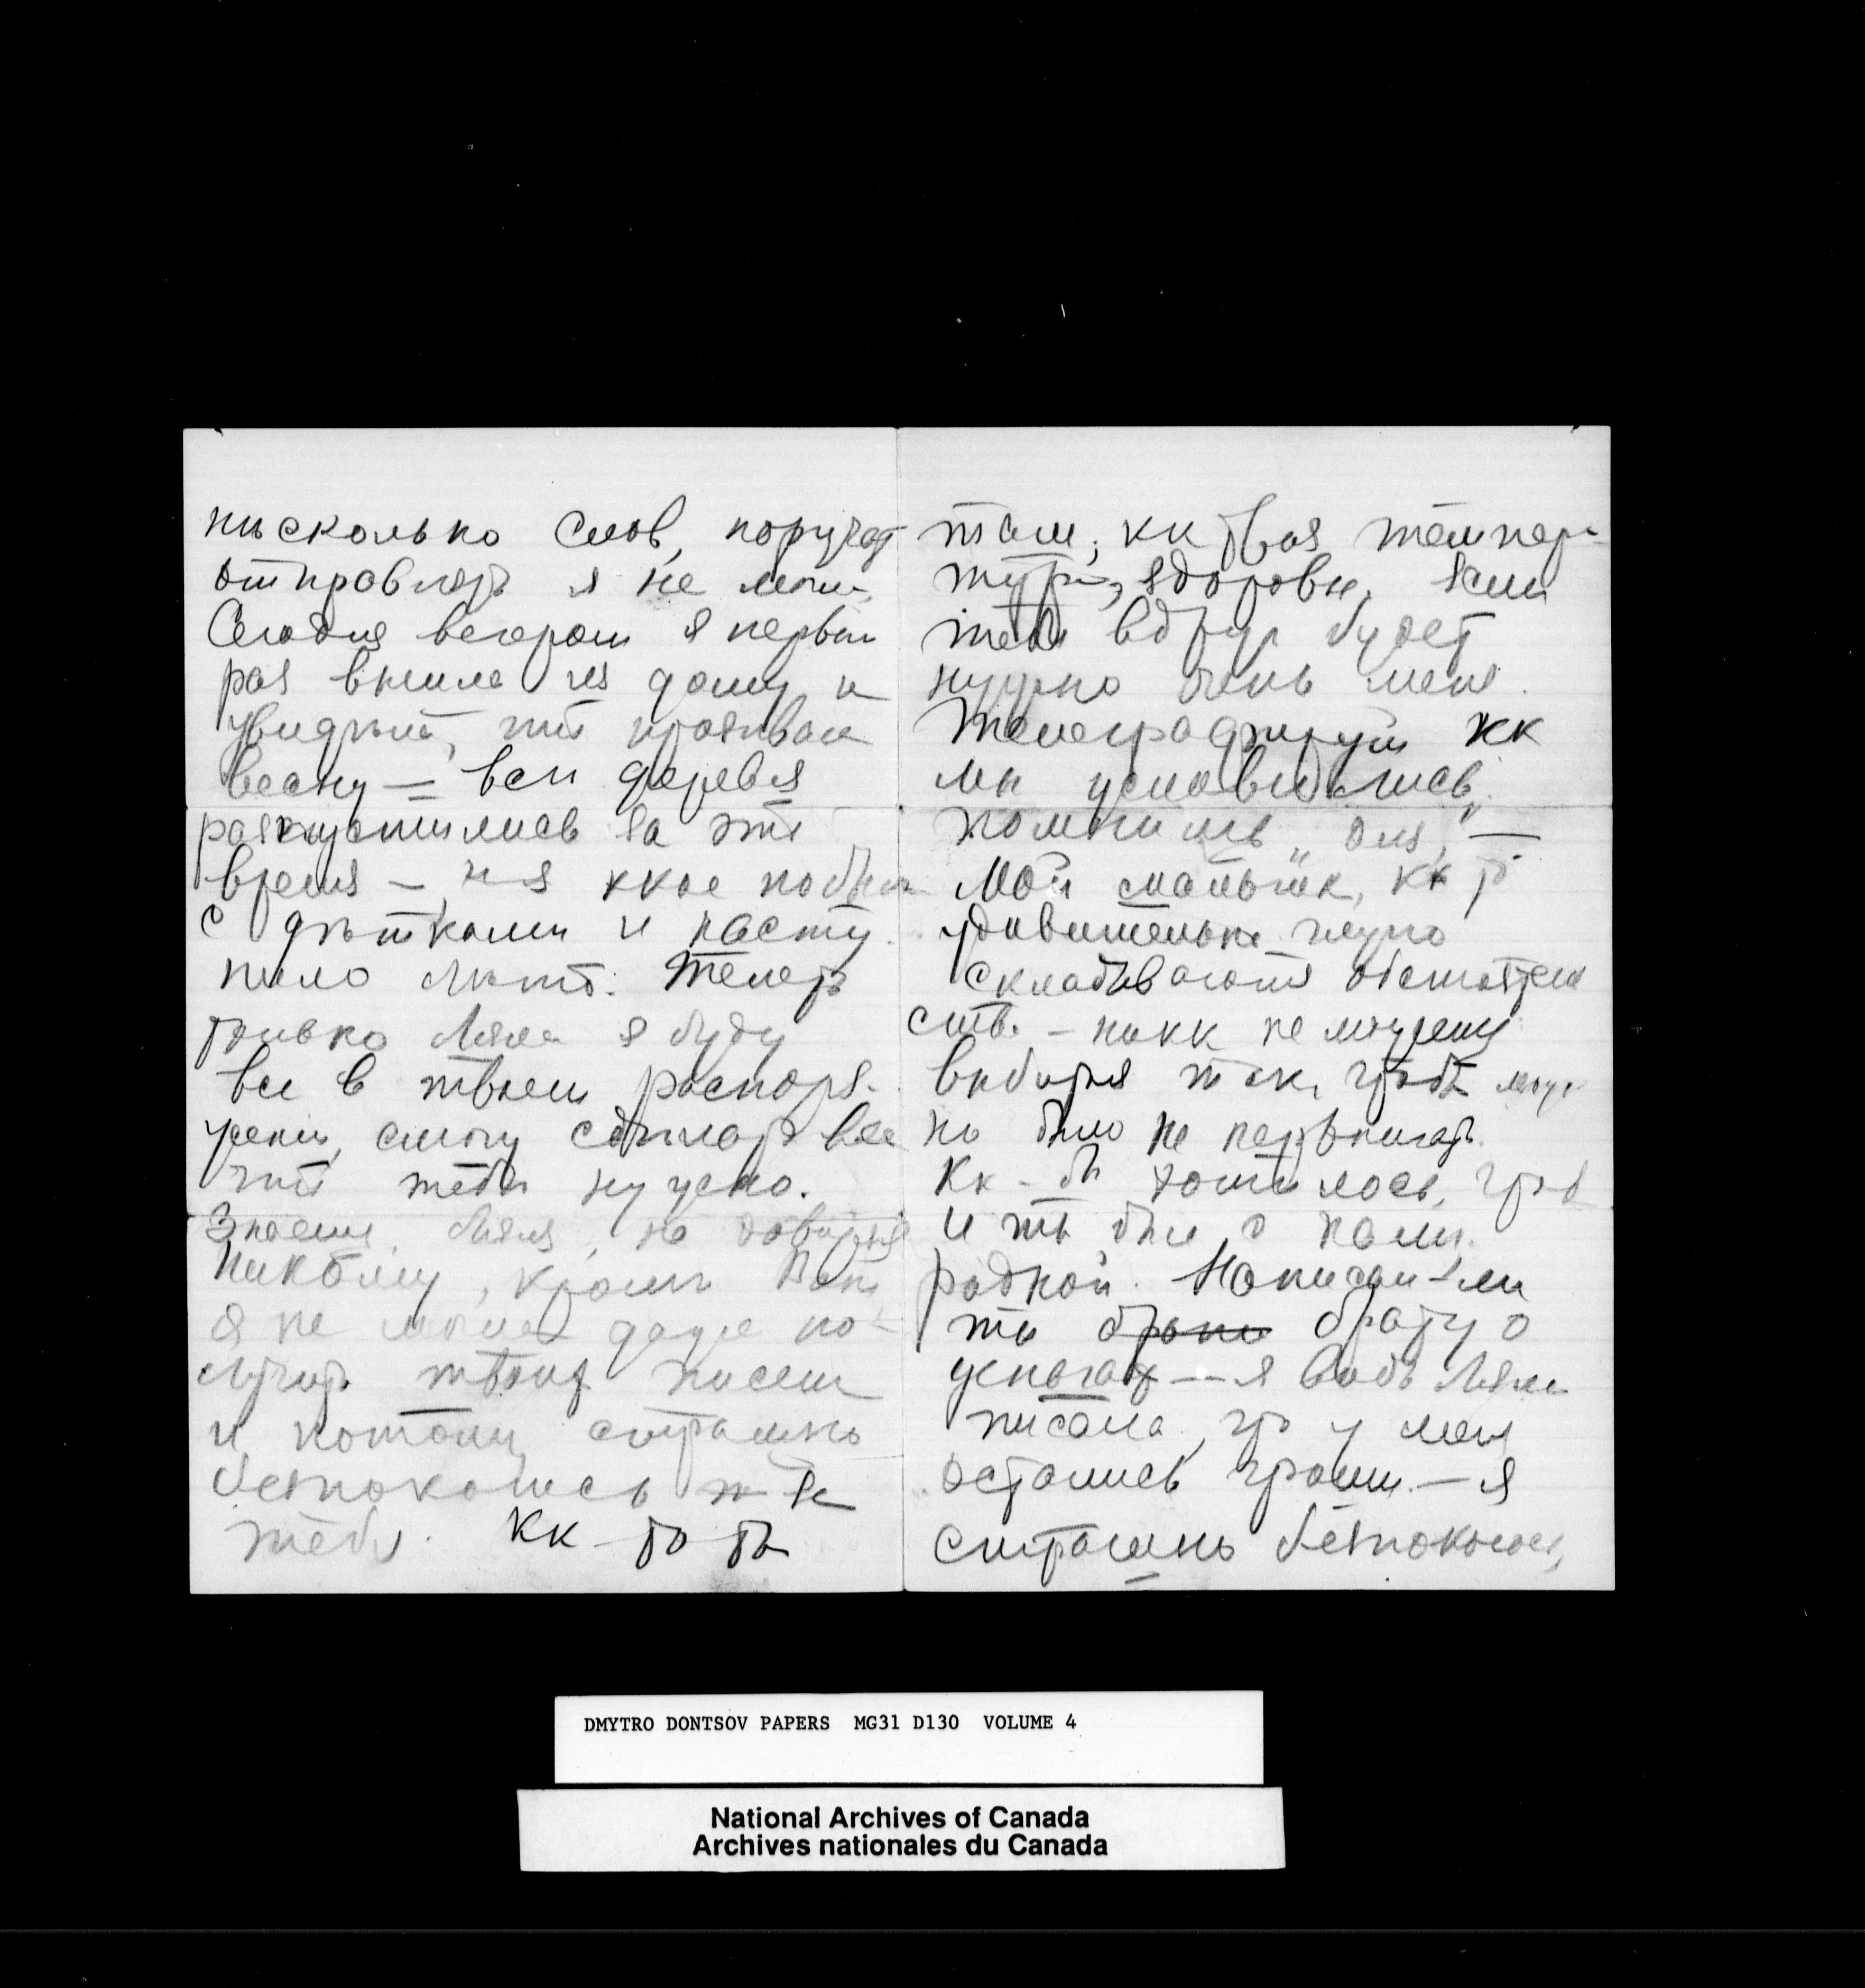 нѣсколько слов, поручат
отправлять я не могла.
Сегодня вечером я первый
раз вышла из дому и
увидѣла, что прозѣвала
весну — всѣ деревья
распустились за это
время —
с дѣтками и насту-
пило лѣто. Теперь
только Ляля я буду
вся в твоем распоря-
жении, смогу сдѣлать все
что тебѣ нужно.
Знаешь, Ляля,
никому, кромѣ
я не могла даже по-
лучать твоих писем
и потому страшно
безпокоилась за
тебя. Кк то ты
там, кк твоя темпера-
тура, здоровье. Если
тебѣ вдруг будет
нужно очень меня
телеграфируй кк
мы условились,
помнишь „
Мой мальчик, кк то
удивительно глупо
складываются обстоятель
ства — никк не могу
выбраться так, чтобы мож
но было не нервничать.
Кк-бы хотѣлось, чтоб
и ты был с нами.
родной. Написал-ли
ты брату о
деньгах — я вѣдь Ляля
писала, что у меня
остались гроши — я
страшно безпокоюсь,
DMYTRO DONTSOV PAPERS MG31 D130 VOLUME 4
National Archives of Canada
Archives nationales du Canada